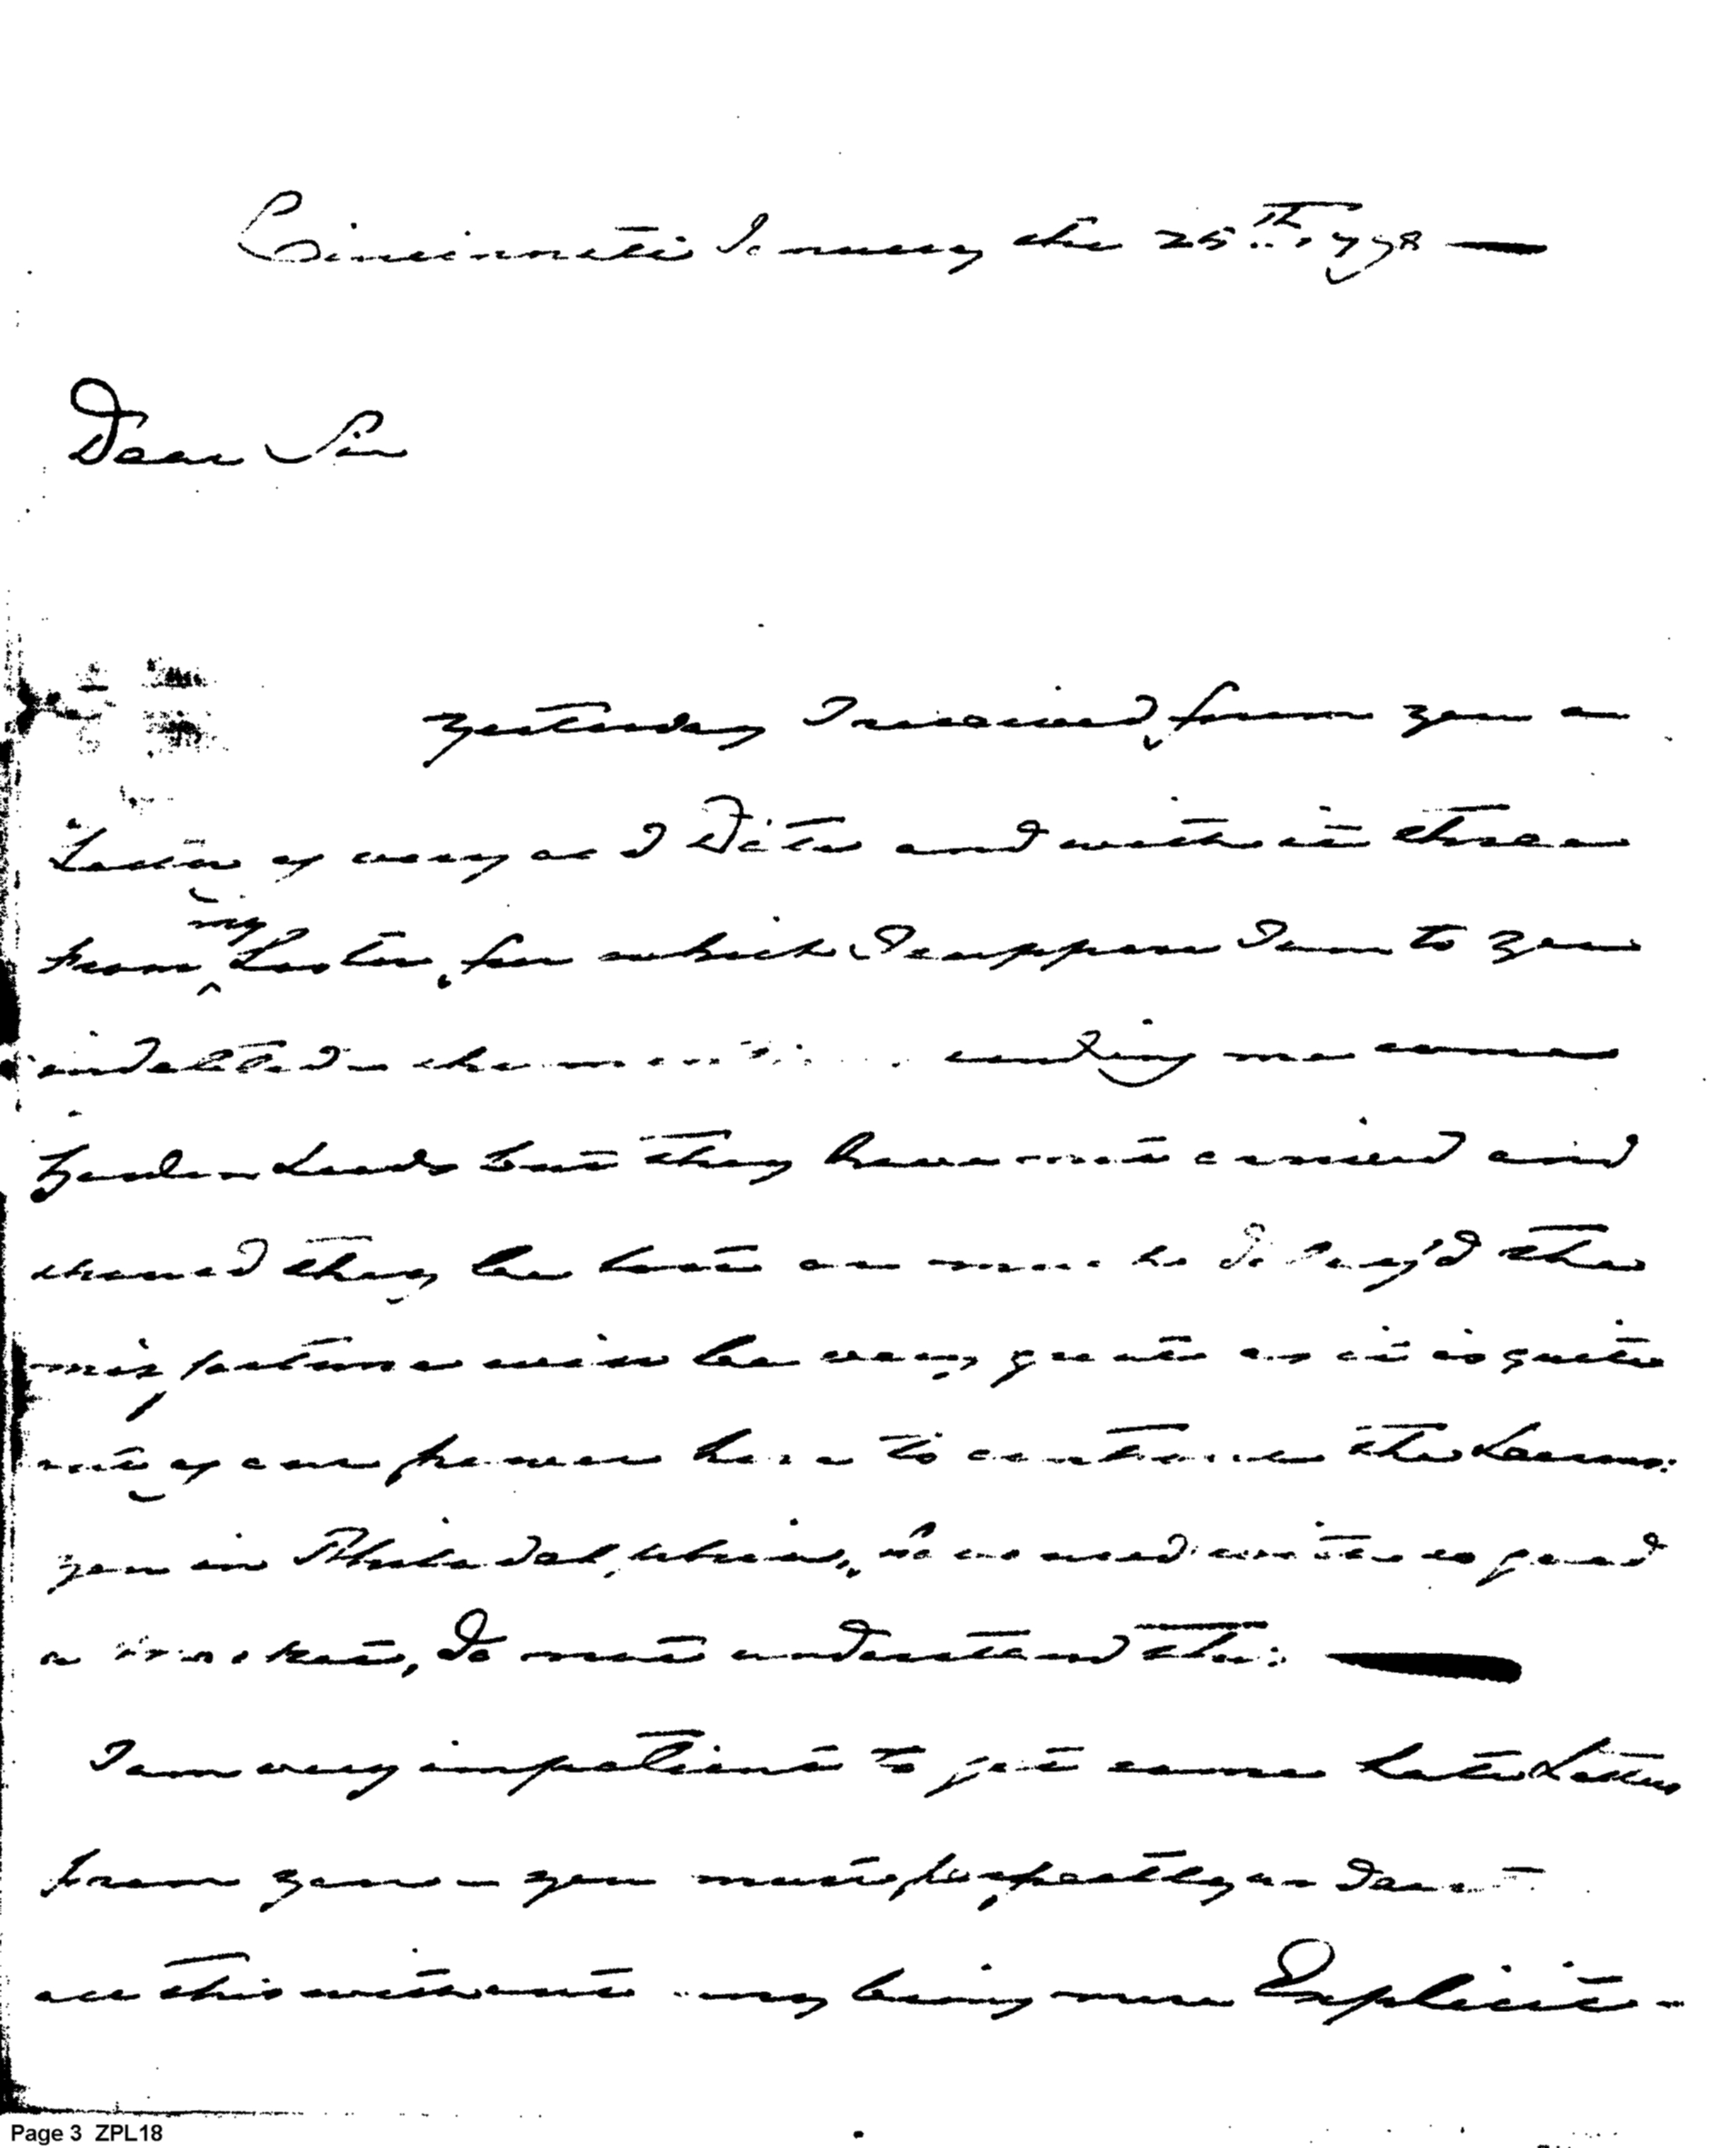 Cincinnati January the 25th 1798 —
Dear Sir
yesterday I received from you a
Letter of very old Date and with it three
from my Sister, for which I suppose I am to you
indebted sending me some
Garden Seeds but they have not arrived and
should they be lost or be delay'd the
misfortune will be very great as it is quite
out of our power here to the
you in Philadelphia, who need
a Market, do not understand this —
I am very impatient to get some late Letters
from you — you must perfectly understand
all this without my being more Explicit —
Page 3 ZPL18